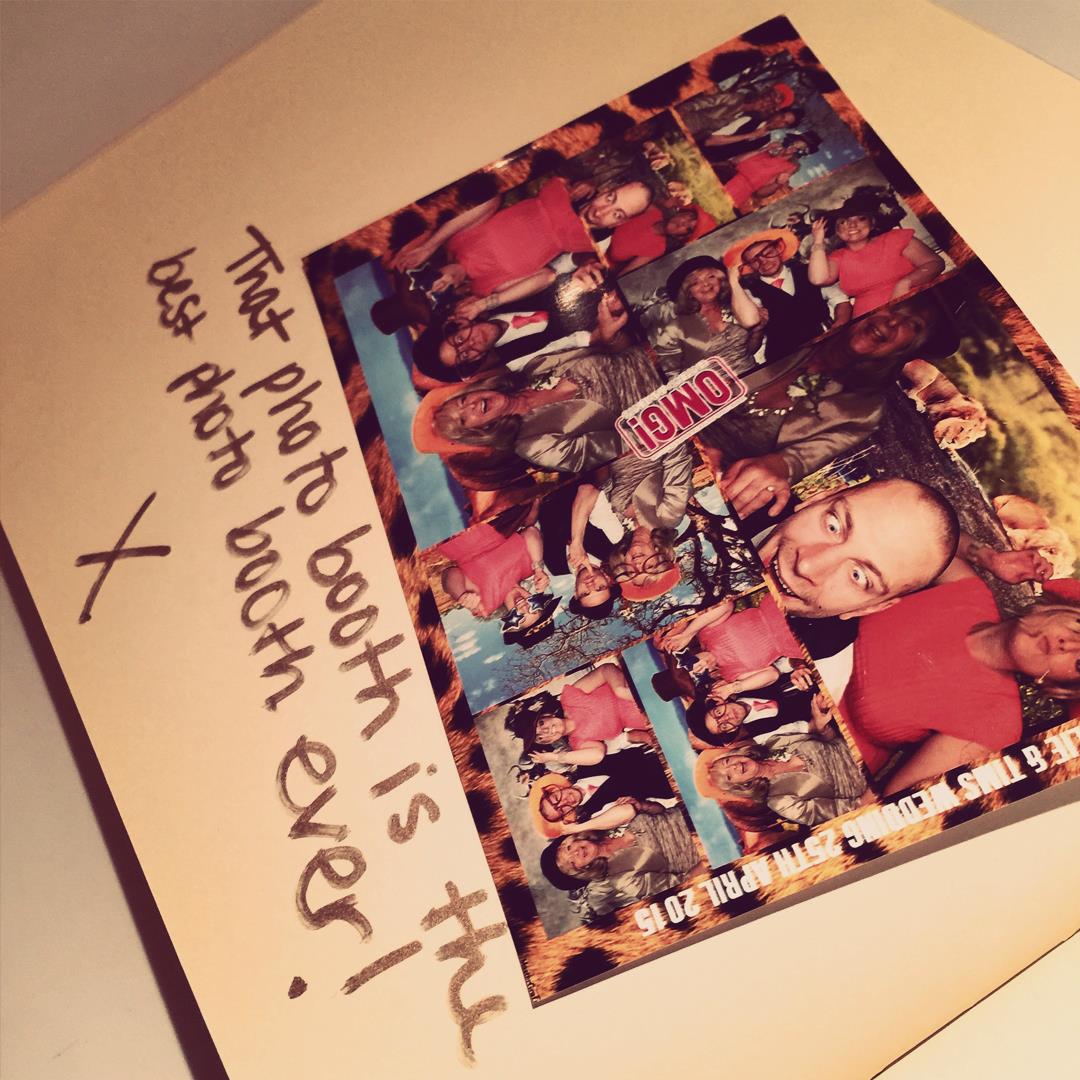 That photo booth is the
best photo booth ever!
X
OMG!
& TIMS WEDDING 25TH APRIL 2015